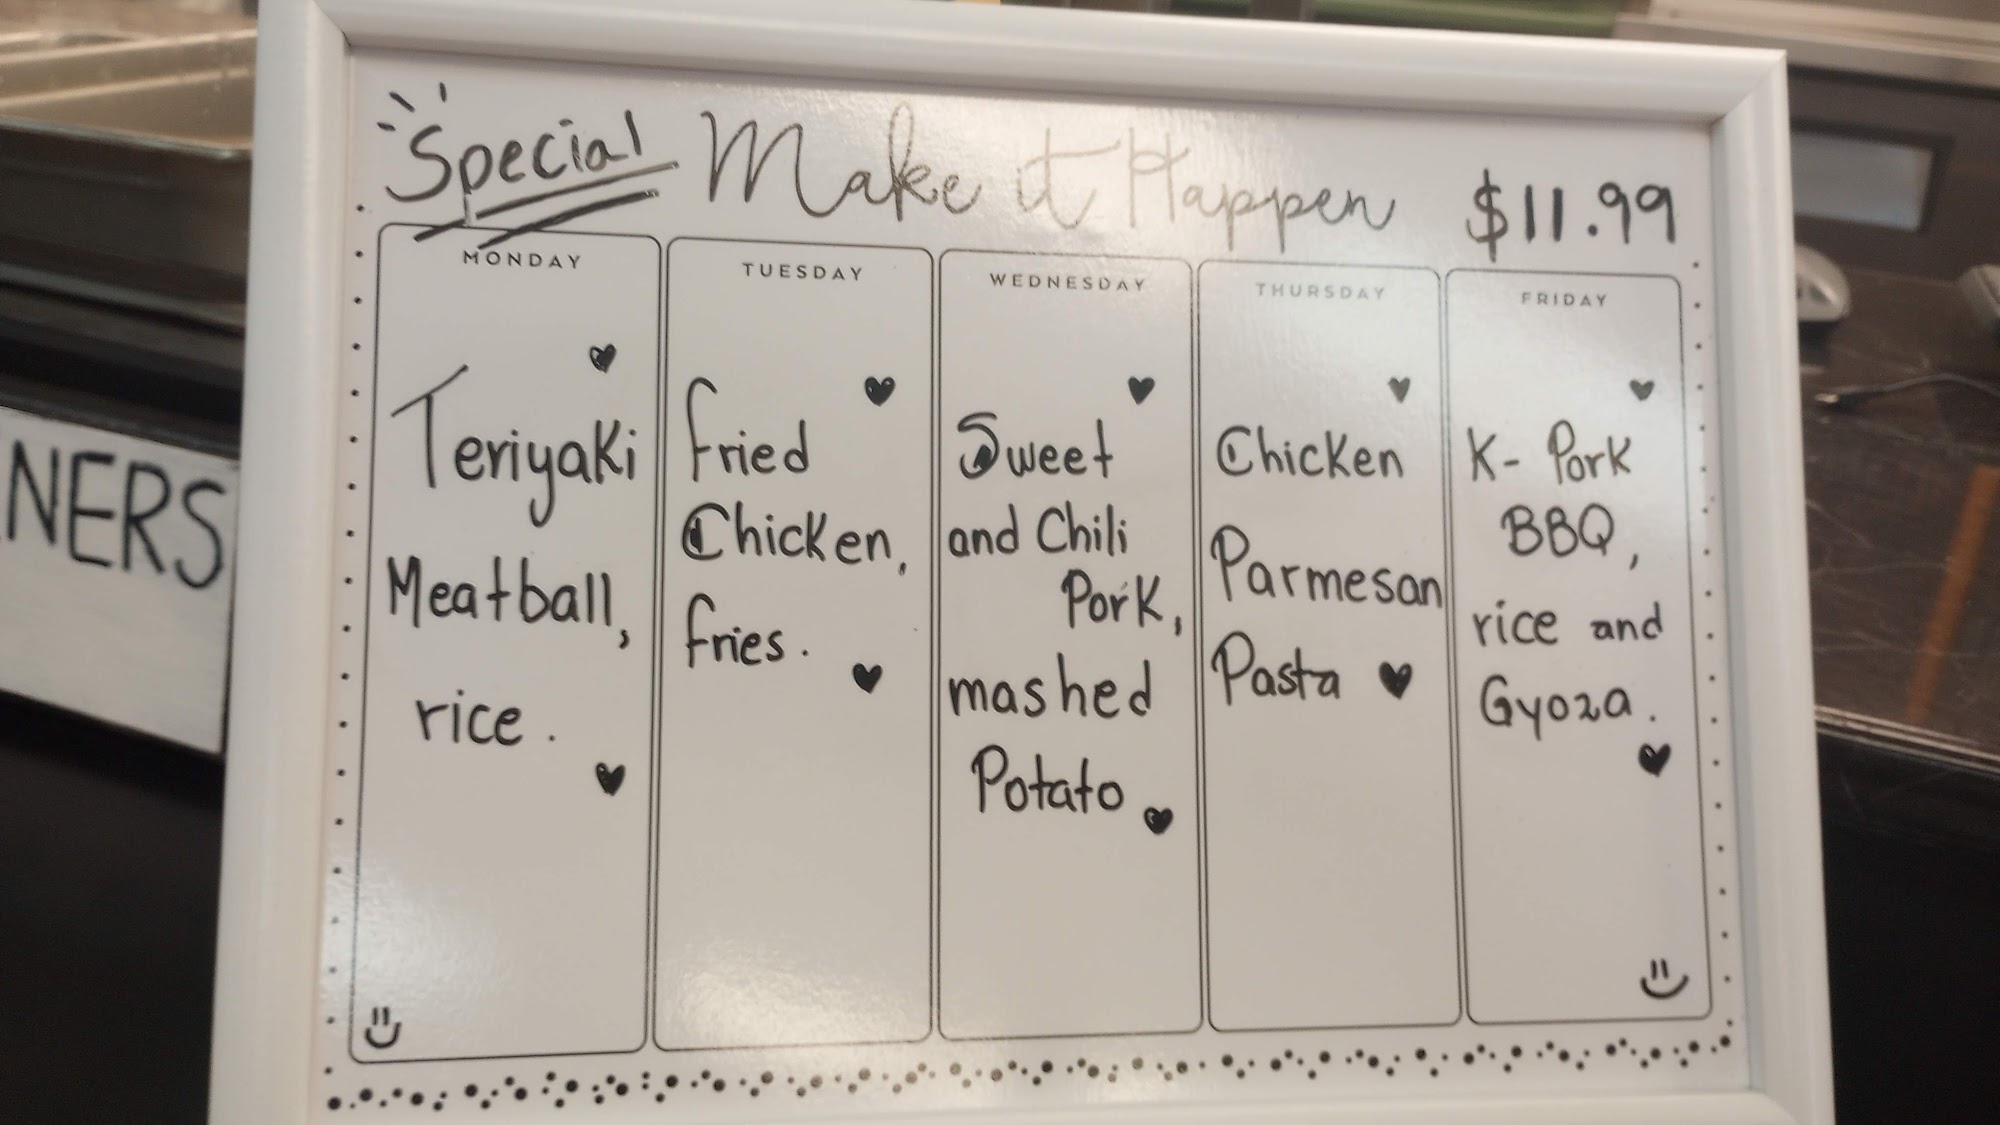 Special Make it Happen $11.99
MONDAY
Teriyaki
Meatball,
rice.
TUESDAY
Fried
Chicken,
fries.
WEDNESDAY
Sweet
and Chili
Pork,
mashed
Potato
THURSDAY
Chicken
Parmesan
Pasta
FRIDAY
K- Pork
BBQ,
rice and
Gyoza.
NERS